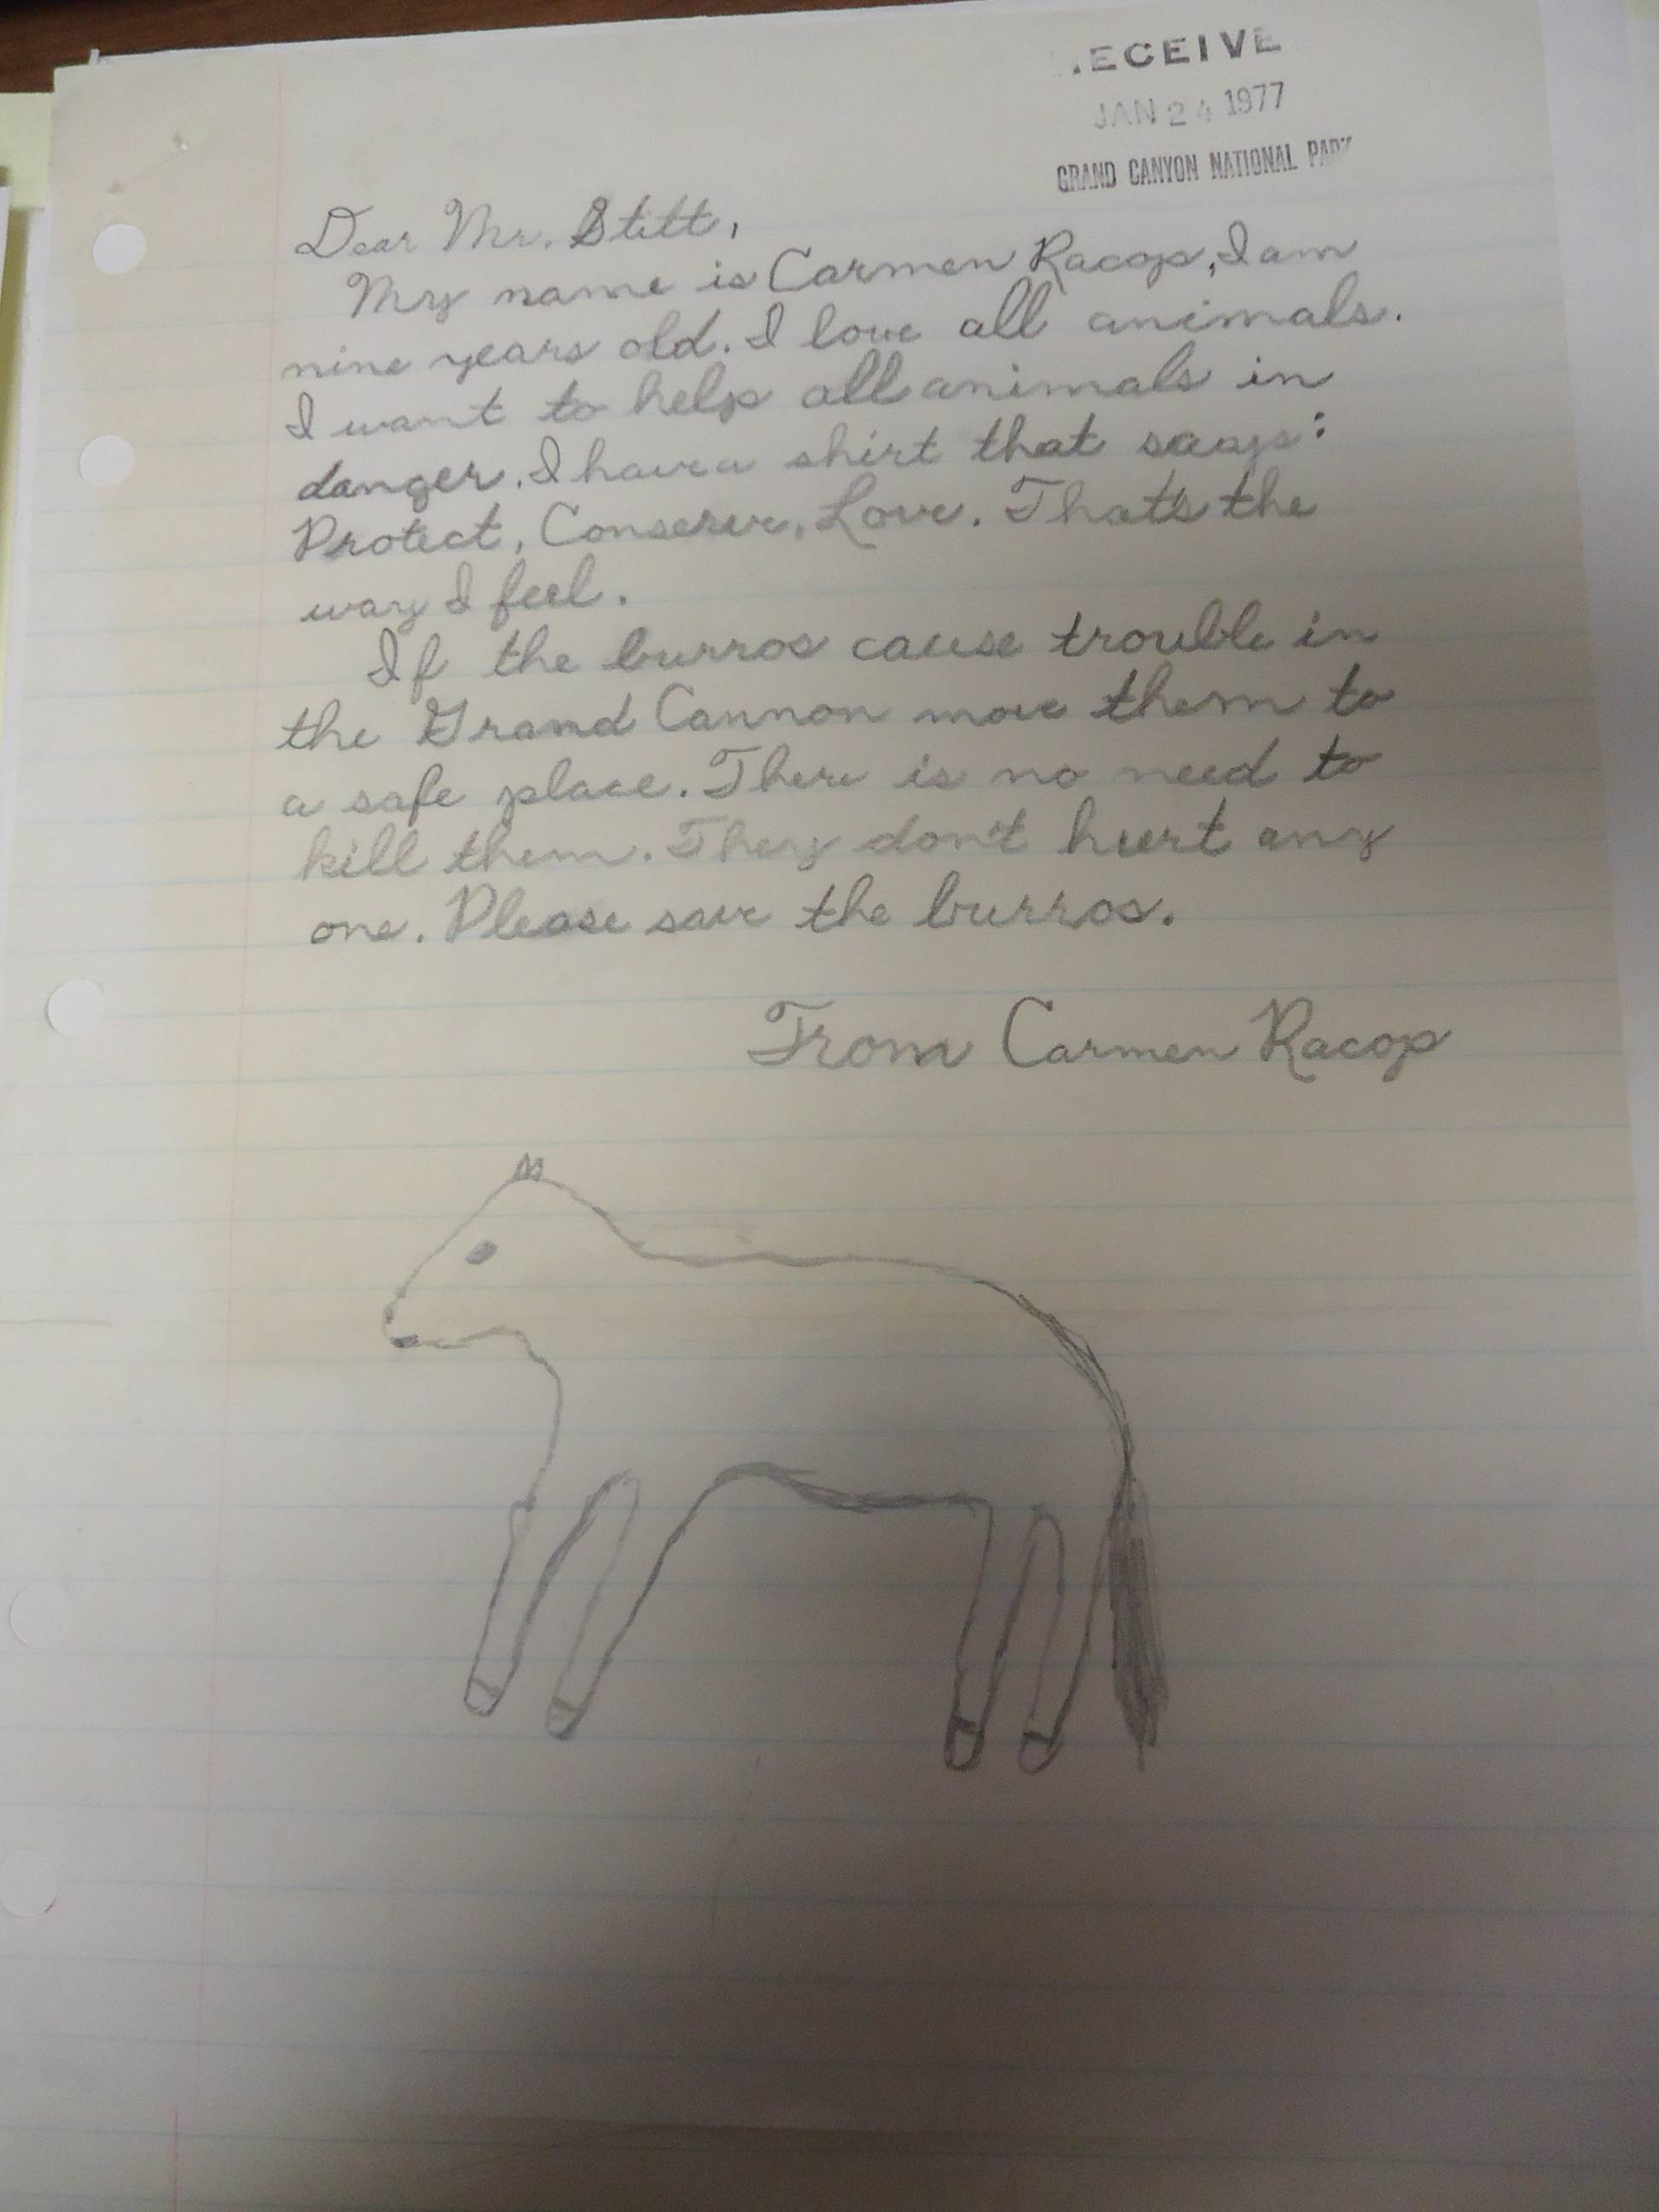 .ECEIVE
JAN 24 1977
GRAND CANYON NATIONAL PARK
Dear Mr. Stitt,
My name is Carmen Racop, I am
nine years old. I love all animals.
I want to help all animals in
danger. I have a shirt that says:
Protect, Conserve, Love. That's the
way I feel.
If the burros cause trouble in
the Grand Cannon move them to
a safe place. There is no need to
kill them. They don't hurt any
one. Please save the burros.
From Carmen Racop